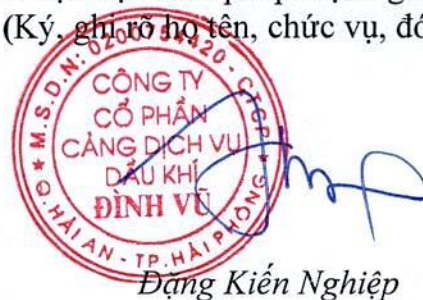 (Ký, ghi rõ họ tên, chức vụ, đó
M.S.D.N: 0200754420 - CTCP
CÔNG TY
CỔ PHẦN
CẢNG DỊCH VỤ
DẦU KHÍ
ĐÌNH VŨ
Q. HẢI AN - TP. HẢI PHÒNG
Đặng Kiến Nghiệp